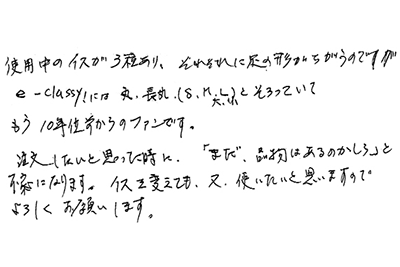 使用中のイスが3種あり、それぞれに足の形がちがうのですが
e-classy!には 丸、長丸、(S、M、L)とそろっていて
大、小
もう10年位前からのファンです。
注文したいと思った時に、「まだ、品物はあるのかしら」と
不安になります。イスを変えても、又、使いたいと思いますので
よろしくお願いします。